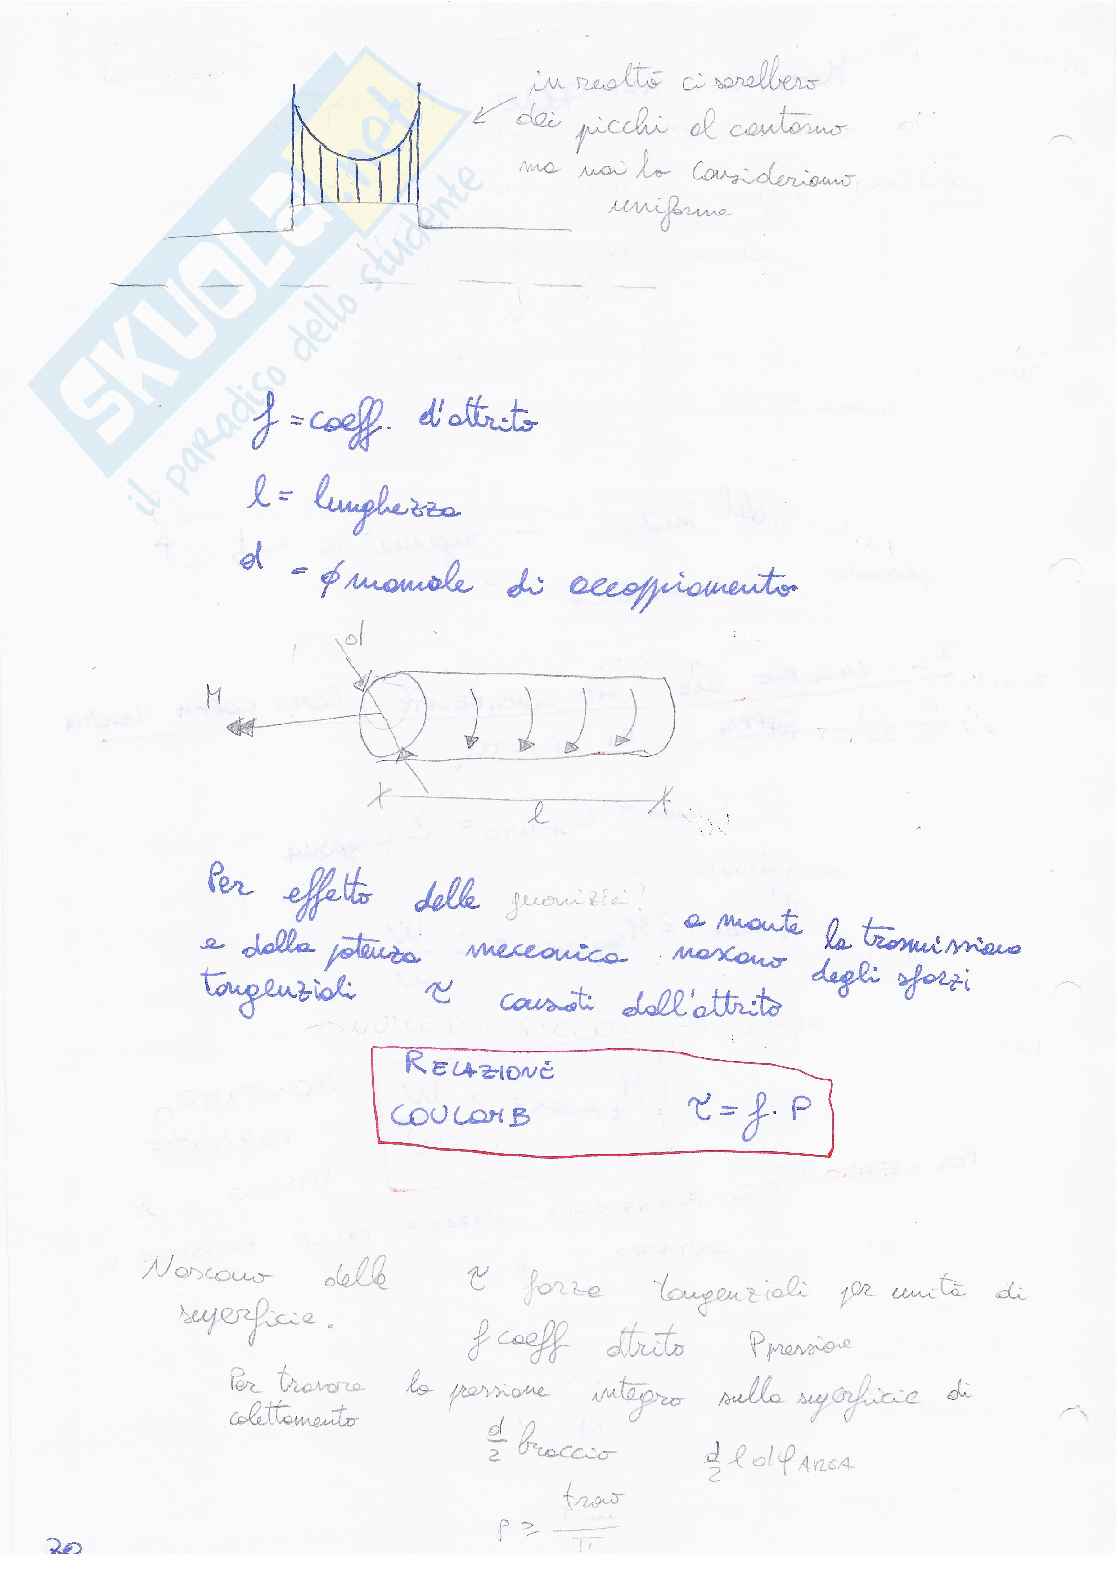 in realtà ci sarebbero
dei picchi al contorno
ma noi lo consideriamo
uniforme
SKUOLA.net
il paradiso dello studente
f = coeff. d'attrito
l = lunghezza
d = ϕ nomale di accoppiamento
d
M
l
Per effetto delle
a monte la trasmissione
e dalla potenza meccanica nascono degli sforzi
tangenziali τ causati dall'attrito
RELAZIONE
COULOMB τ = f · P
Nascono delle τ forze tangenziali per unità di
superficie.
f coeff attrito P pressione
Per trovare la pressione integro sulla superficie di
calettamento
d/2 braccio d/2 l dφ AREA
trovo
P ≥
30